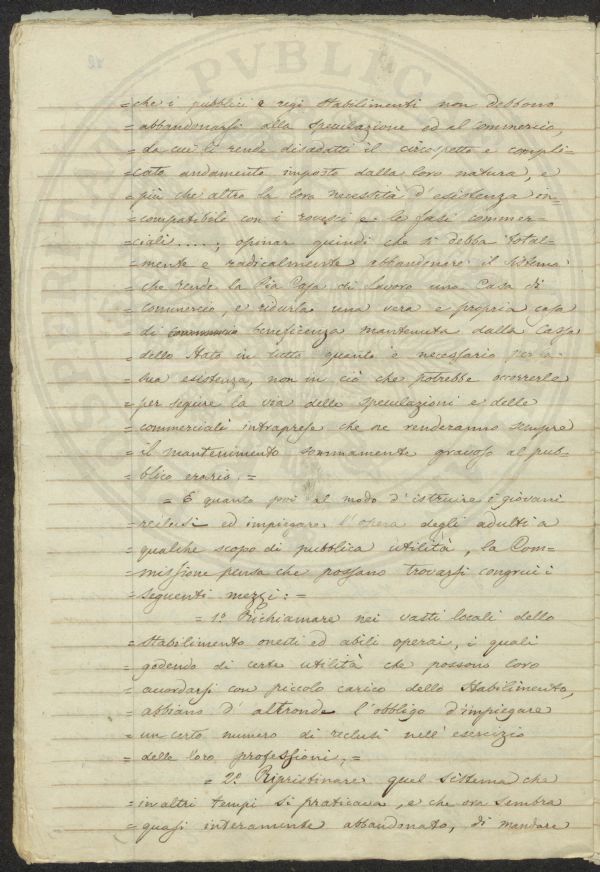 =che i pubblici e regi stabilimenti non debbono
=abbandonarsi alla speculazione ed al commercio,
=da cui li rende disadatti il circospetto e compli-
=cato andamento imposto dalla loro natura, e
=più che altro la loro necessità d'esistenza in-
=compatibile con i rovesci e le fasi commer-
=ciali....; opinar quindi che si debba total-
=mente e radicalmente abbandonare il sistema
=che rende la Pia Casa di Lavoro una Casa di
=commercio, e ridurla una vera e propria casa
=di commercio beneficenza mantenuta dalla Cassa
=dello Stato in tutto quanto è necessario per
=sua esistenza, non in ciò che potrebbe occorrerle
=per seguire la via delle speculazioni e delle
=commerciali intraprese che ne renderanno sempre
=il mantenimento sommamente gravoso al pub-
=blico erario.=
=E quanto poi al modo d'istruire i giovani
=reclusi ed impiegare l'opera degli adulti a
=qualche scopo di pubblica utilità, la Com-
=missione pensa che possano trovarsi congrui i
=seguenti mezzi:=
=1.° Richiamare nei vasti locali dello
=stabilimento onesti ed abili operai, i quali
=godendo di certe utilità che possono loro
=accordarsi con piccolo carico dello Stabilimento,
=abbiano d'altronde l'obbligo d'impiegare
=un certo numero di reclusi nell'esercizio
=delle loro professioni;=
=2.° Ripristinare quel sistema che
=in altri tempi si praticava, e che ora sembra
=quasi interamente abbandonato, di mandare